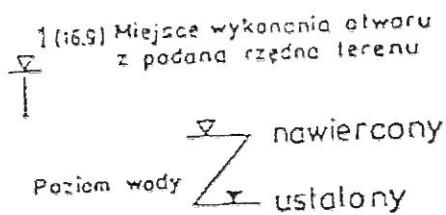 1 (16.9) Miejsce wykonania otworu
z podana rzędna terenu
nawiercony
Poziom wody
ustalony